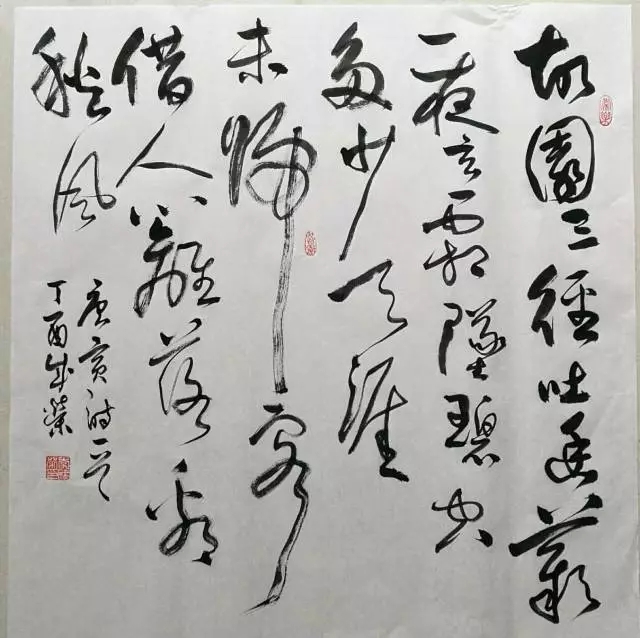 故園三徑吐幽叢
一夜玄霜墜碧空
多少天涯
未歸客
借人籬落看
秋風
唐寅诗一首
丁酉成榮